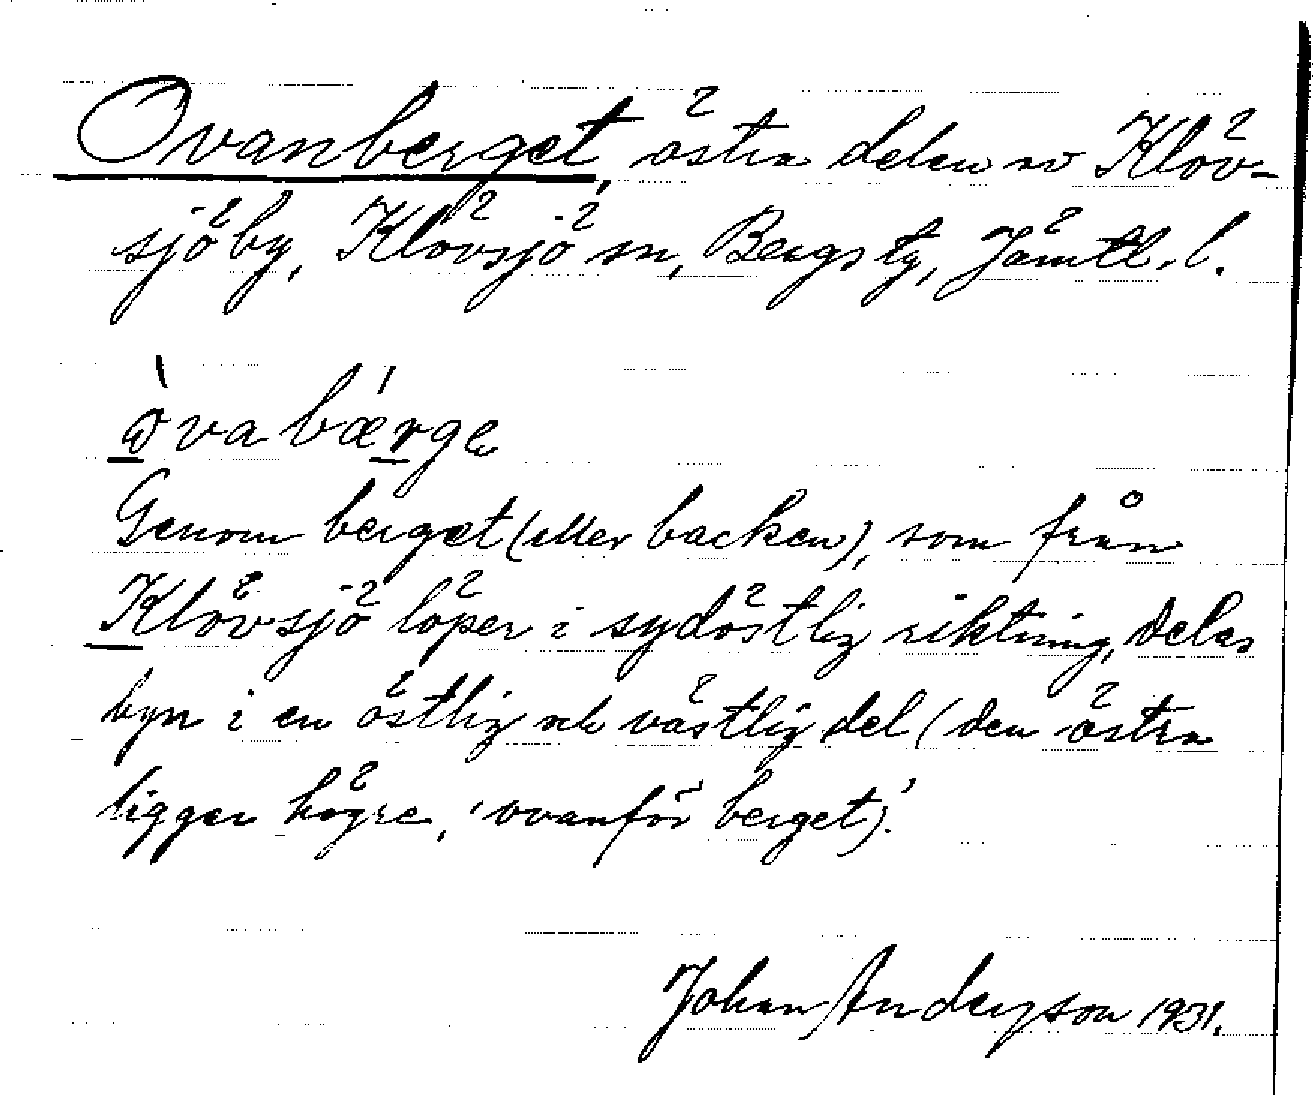 Ovanberget, östra delen av Klöv-
sjö by, Klövsjö sn, Bergs tg, Jämtl. l.
òva bǽrge
Genom berget (eller backen), som från
Klövsjö löper i sydöstlig riktning, delas
byn i en östlig och västlig del (den östra
ligger högre, 'ovanför berget').
Johan Anderson 1931.